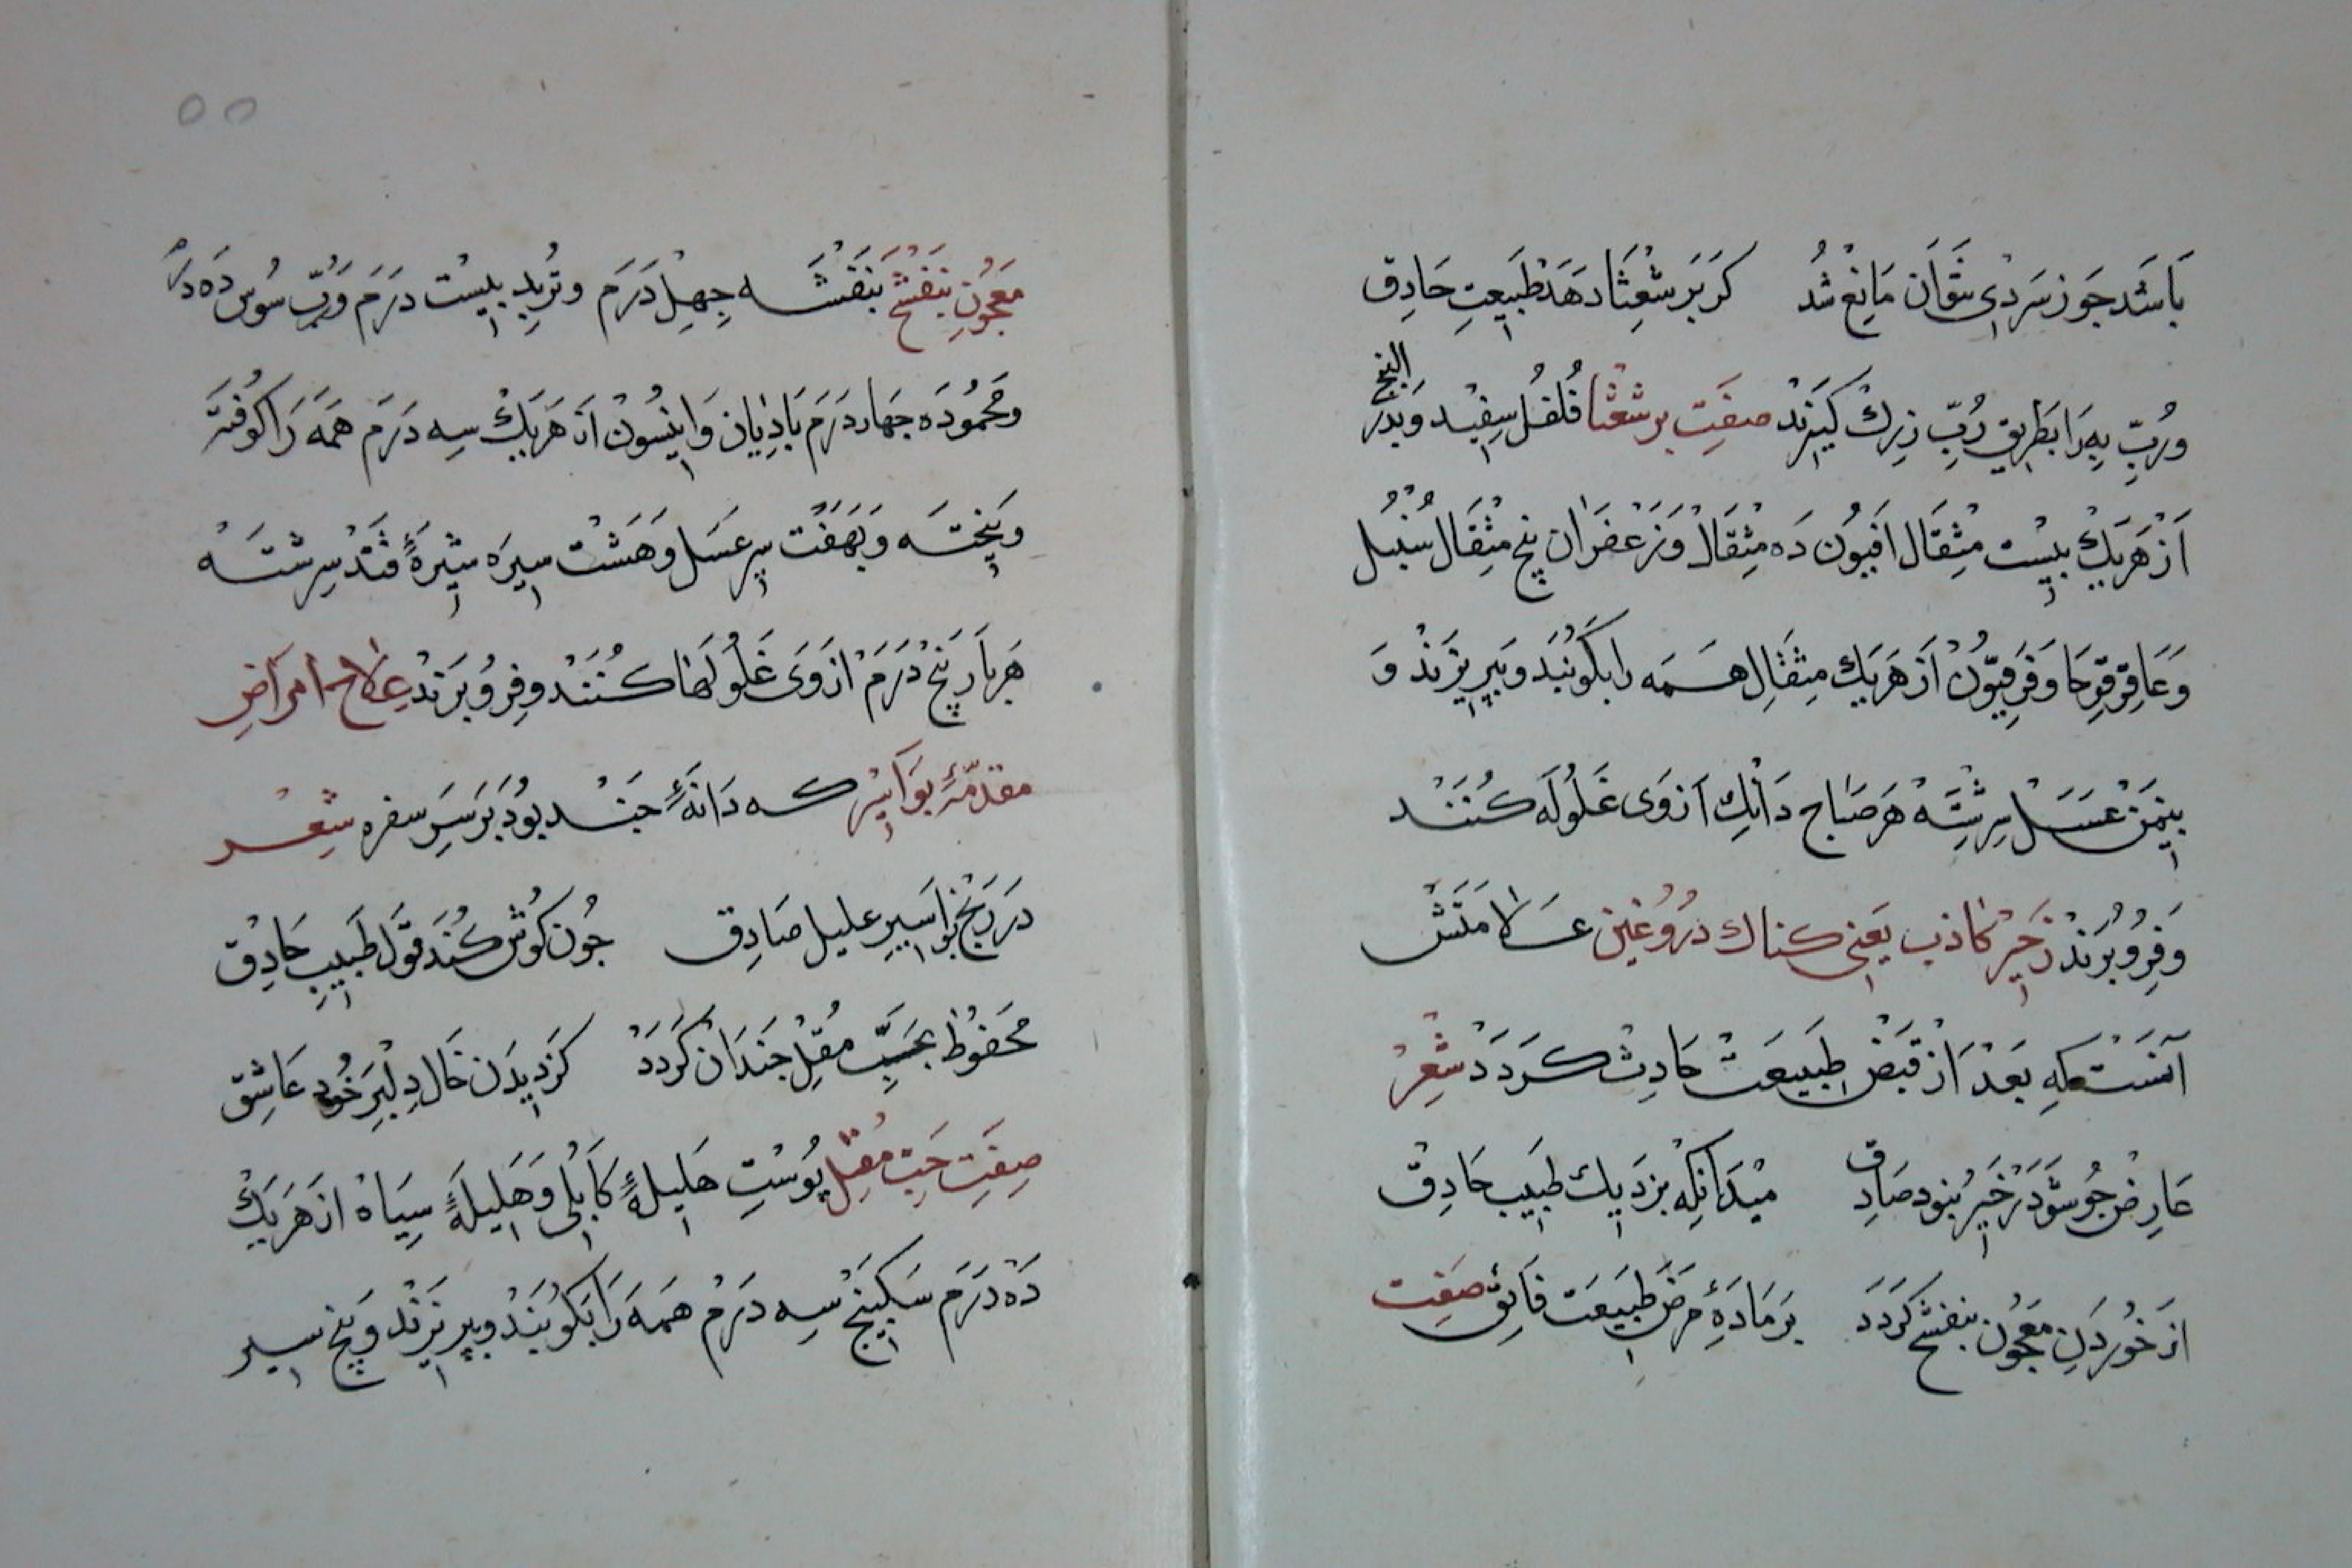 بَاشَد جَوز سَردِی نتَوَان مَانِعْ شُد كَر بَرشَعْثَا دهَد طَبِيعتِ حَاذِق
ورُبِّ بِه رَا بَطَرِيقِ رُبِّ زِرِك كيرَند صِفَتِ برشعْثا فُلفُل سِفِيد وَبَذر البنج
اَز هَر يَك بيسْت مِثقَال اَفيُون دَه مِثقَال وَزَعْفَران پنج مِثقَال سُنبُل
وَعَاقِرقَرحَا وَفَرفيُّون اَز هَر يَك مِثقَال همَه را بكُوبَند وَبپيزَند وَ
بثمَن عَسَل سِرشتَه هَر صَبَاح دَانك اَز وَی غَلُولَه كُنَند
وَفِرُو بُرَند زَحِيرِ كاذب يَعنی كناك دُرُوغين عَلامتَش
آنَسْت كه بَعْد اَز قَبضِ طَبيعَت حَادِث كردَد شِعْر
عَارِض جُو شَوَد زَحِير نبود صَادِق ميْدَانكِه بنزدِيك طَبيبِ حَاذِق
از خُوردَنِ مَعجُونِ بنَفشَج كَردَد بَر مَادَهِٔ مرَض طَبِيعَت فَائِق صِفَت
٥٥
مَعجُونِ بنَفشَج بنَفشَه جِهِل دَرَم وتُربِد بيسْت درَم وَرُبِّ سُوس دَه دَرَم
ومَحمُودَه جهَار دَرَم بَاديَان وَانيسُون اَز هَر يَك سِه دَرَم همَه رَا كُوفتَه
وبيختَه وَبَهَفت سِيِر عَسَل وَهَشْت سيرَه شيرَهٔ قَند سِرشتَه
هَر بَار پَنج دَرَم از وَی غَلُولهَا كُنَند وفِرُو بَرَند عِلَاج اَمرَاضِ
مقدّمهٔ بوَاسِير كه دَانَهٔ جَند بُود بَر سَرِ سفره شِعْر
دَر رَنج بوَاسِير عليل صَادِق جُون كُوش كُنَد قَولِ طَبيبِ حَاذِق
مَحفُوظ بحَبِّ مُقِل جَندَان كَردَد كَز دِيدَن خَالِ دِلبَرِ خُود عَاشِق
صِفَتِ حَبّ مُقِل پُوستِ هَليلهٔ كَابُلی وَهَليلَهٔ سيَاه از هَر يَك
دَه دَرَم سَكبينَج سِه دَرَم همَه رَا بكُوبَند وبپيزَند وَپنج سير